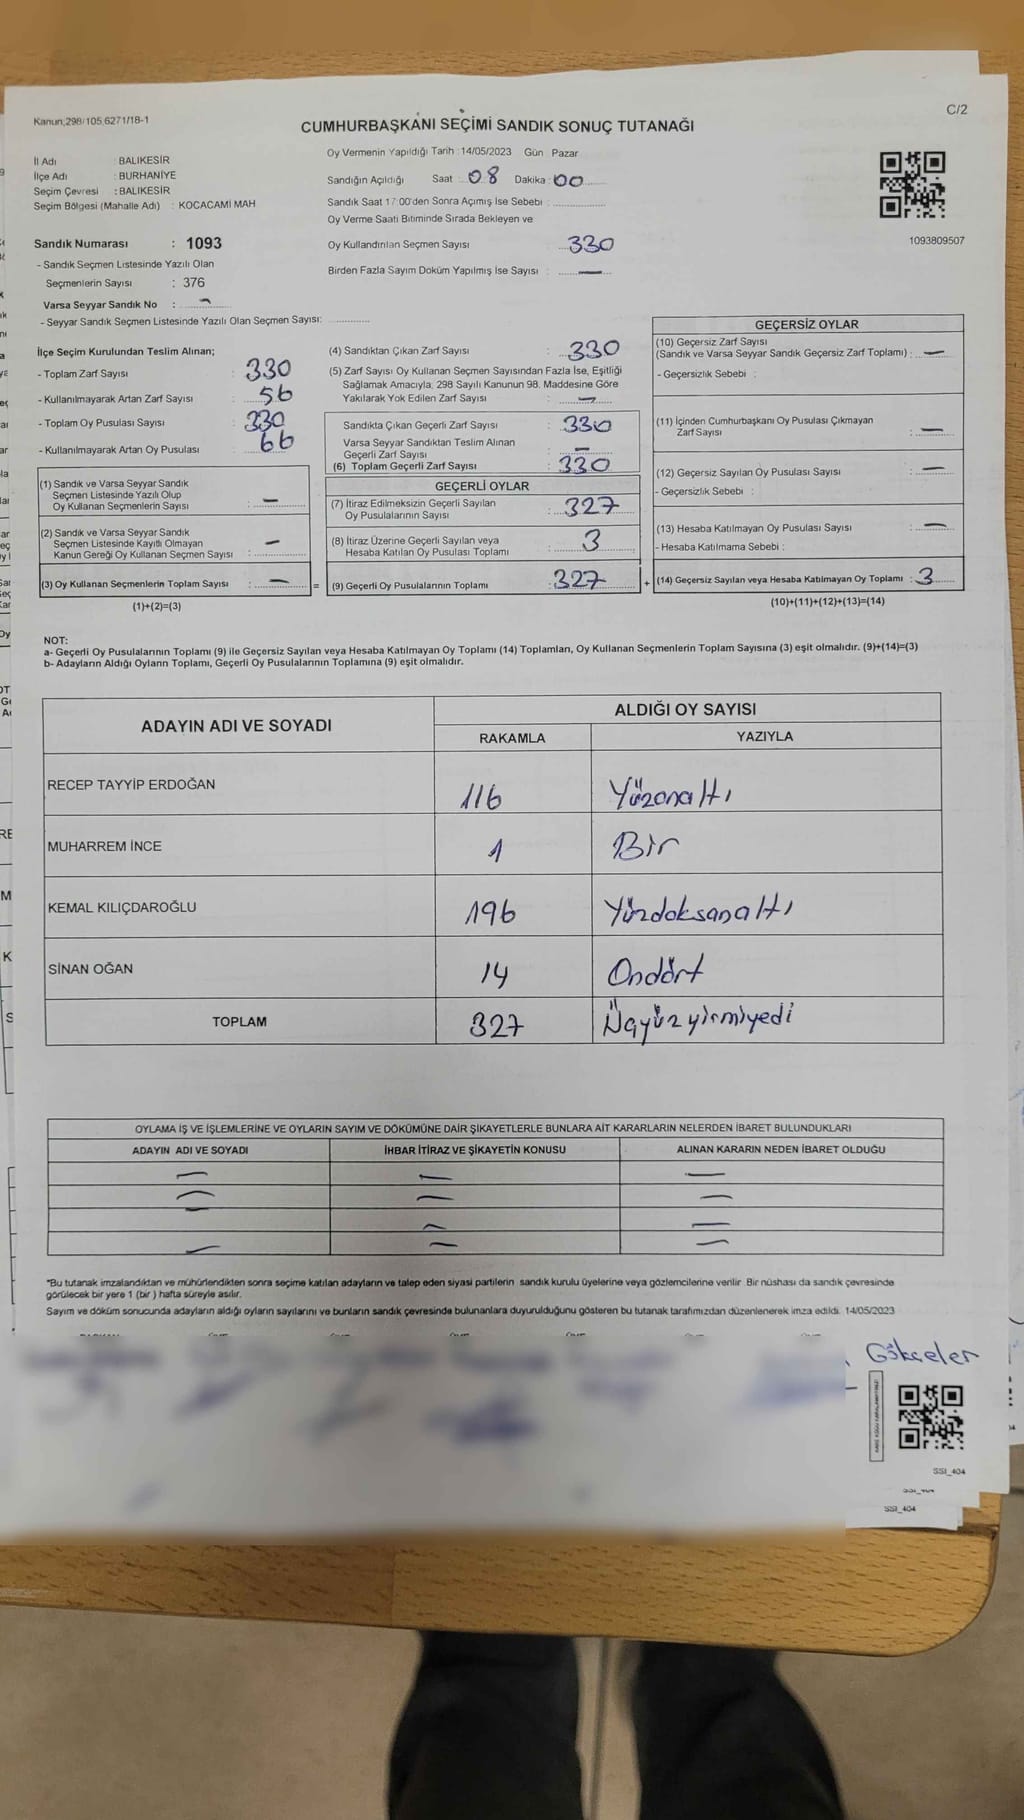 Kanun;298/105,6271/18-1
C/2
CUMHURBAŞKANI SEÇİMİ SANDIK SONUÇ TUTANAĞI
İl Adı : BALIKESİR
İlçe Adı : BURHANİYE
Seçim Çevresi : BALIKESİR
Seçim Bölgesi (Mahalle Adı) : KOCACAMİ MAH
Oy Vermenin Yapıldığı Tarih : 14/05/2023 Gün Pazar
Sandığın Açıldığı Saat : 08 Dakika : 00
Sandık Saat 17:00'den Sonra Açımış İse Sebebi :
Oy Verme Saati Bitiminde Sırada Bekleyen ve
Oy Kullandırılan Seçmen Sayısı : 330
Birden Fazla Sayım Döküm Yapılmış İse Sayısı : —
1093809507
Sandık Numarası : 1093
- Sandık Seçmen Listesinde Yazılı Olan
Seçmenlerin Sayısı : 376
Varsa Seyyar Sandık No : —
- Seyyar Sandık Seçmen Listesinde Yazılı Olan Seçmen Sayısı:
İlçe Seçim Kurulundan Teslim Alınan;
- Toplam Zarf Sayısı : 330
- Kullanılmayarak Artan Zarf Sayısı : 56
- Toplam Oy Pusulası Sayısı : 330
- Kullanılmayarak Artan Oy Pusulası : 66
(1) Sandık ve Varsa Seyyar Sandık
Seçmen Listesinde Yazılı Olup
Oy Kullanan Seçmenlerin Sayısı : —
(2) Sandık ve Varsa Seyyar Sandık
Seçmen Listesinde Kayıtlı Olmayan
Kanun Gereği Oy Kullanan Seçmen Sayısı : —
(3) Oy Kullanan Seçmenlerin Toplam Sayısı : — =
(1)+(2)=(3)
(4) Sandıktan Çıkan Zarf Sayısı : 330
(5) Zarf Sayısı Oy Kullanan Seçmen Sayısından Fazla İse, Eşitliği
Sağlamak Amacıyla, 298 Sayılı Kanunun 98. Maddesine Göre
Yakılarak Yok Edilen Zarf Sayısı : —
Sandıkta Çıkan Geçerli Zarf Sayısı : 330
Varsa Seyyar Sandıktan Teslim Alınan
Geçerli Zarf Sayısı : —
(6) Toplam Geçerli Zarf Sayısı : 330
GEÇERLİ OYLAR
(7) İtiraz Edilmeksizin Geçerli Sayılan
Oy Pusulalarının Sayısı : 327
(8) İtiraz Üzerine Geçerli Sayılan veya
Hesaba Katılan Oy Pusulası Toplamı : 3
(9) Geçerli Oy Pusulalarının Toplamı : 327 +
GEÇERSİZ OYLAR
(10) Geçersiz Zarf Sayısı
(Sandık ve Varsa Seyyar Sandık Geçersiz Zarf Toplamı) : —
- Geçersizlik Sebebi :
(11) İçinden Cumhurbaşkanı Oy Pusulası Çıkmayan
Zarf Sayısı : —
(12) Geçersiz Sayılan Oy Pusulası Sayısı : —
- Geçersizlik Sebebi :
(13) Hesaba Katılmayan Oy Pusulası Sayısı : —
- Hesaba Katılmama Sebebi :
(14) Geçersiz Sayılan veya Hesaba Katılmayan Oy Toplamı : 3
(10)+(11)+(12)+(13)=(14)
NOT:
a- Geçerli Oy Pusulalarının Toplamı (9) ile Geçersiz Sayılan veya Hesaba Katılmayan Oy Toplamı (14) Toplamları, Oy Kullanan Seçmenlerin Toplam Sayısına (3) eşit olmalıdır. (9)+(14)=(3)
b- Adayların Aldığı Oyların Toplamı, Geçerli Oy Pusulalarının Toplamına (9) eşit olmalıdır.
ADAYIN ADI VE SOYADI
ALDIĞI OY SAYISI
RAKAMLA YAZIYLA
RECEP TAYYİP ERDOĞAN 116 Yüzonaltı
MUHARREM İNCE 1 Bir
KEMAL KILIÇDAROĞLU 196 Yüzdoksanaltı
SİNAN OĞAN 14 Ondört
TOPLAM 327 Üçyüzyirmiyedi
OYLAMA İŞ VE İŞLEMLERİNE VE OYLARIN SAYIM VE DÖKÜMÜNE DAİR ŞİKAYETLERLE BUNLARA AİT KARARLARIN NELERDEN İBARET BULUNDUKLARI
ADAYIN ADI VE SOYADI İHBAR İTİRAZ VE ŞİKAYETİN KONUSU ALINAN KARARIN NEDEN İBARET OLDUĞU
— — —
— — —
— — —
— — —
*Bu tutanak imzalandıktan ve mühürlendikten sonra seçime katılan adayların ve talep eden siyasi partilerin sandık kurulu üyelerine veya gözlemcilerine verilir. Bir nüshası da sandık çevresinde
görülecek bir yere 1 (bir) hafta süreyle asılır.
Sayım ve döküm sonucunda adayların aldığı oyların sayılarını ve bunların sandık çevresinde bulunanlara duyurulduğunu gösteren bu tutanak tarafımızdan düzenlenerek imza edildi. 14/05/2023
Gökçeler
SSI_404
SSI_404
SSI_404